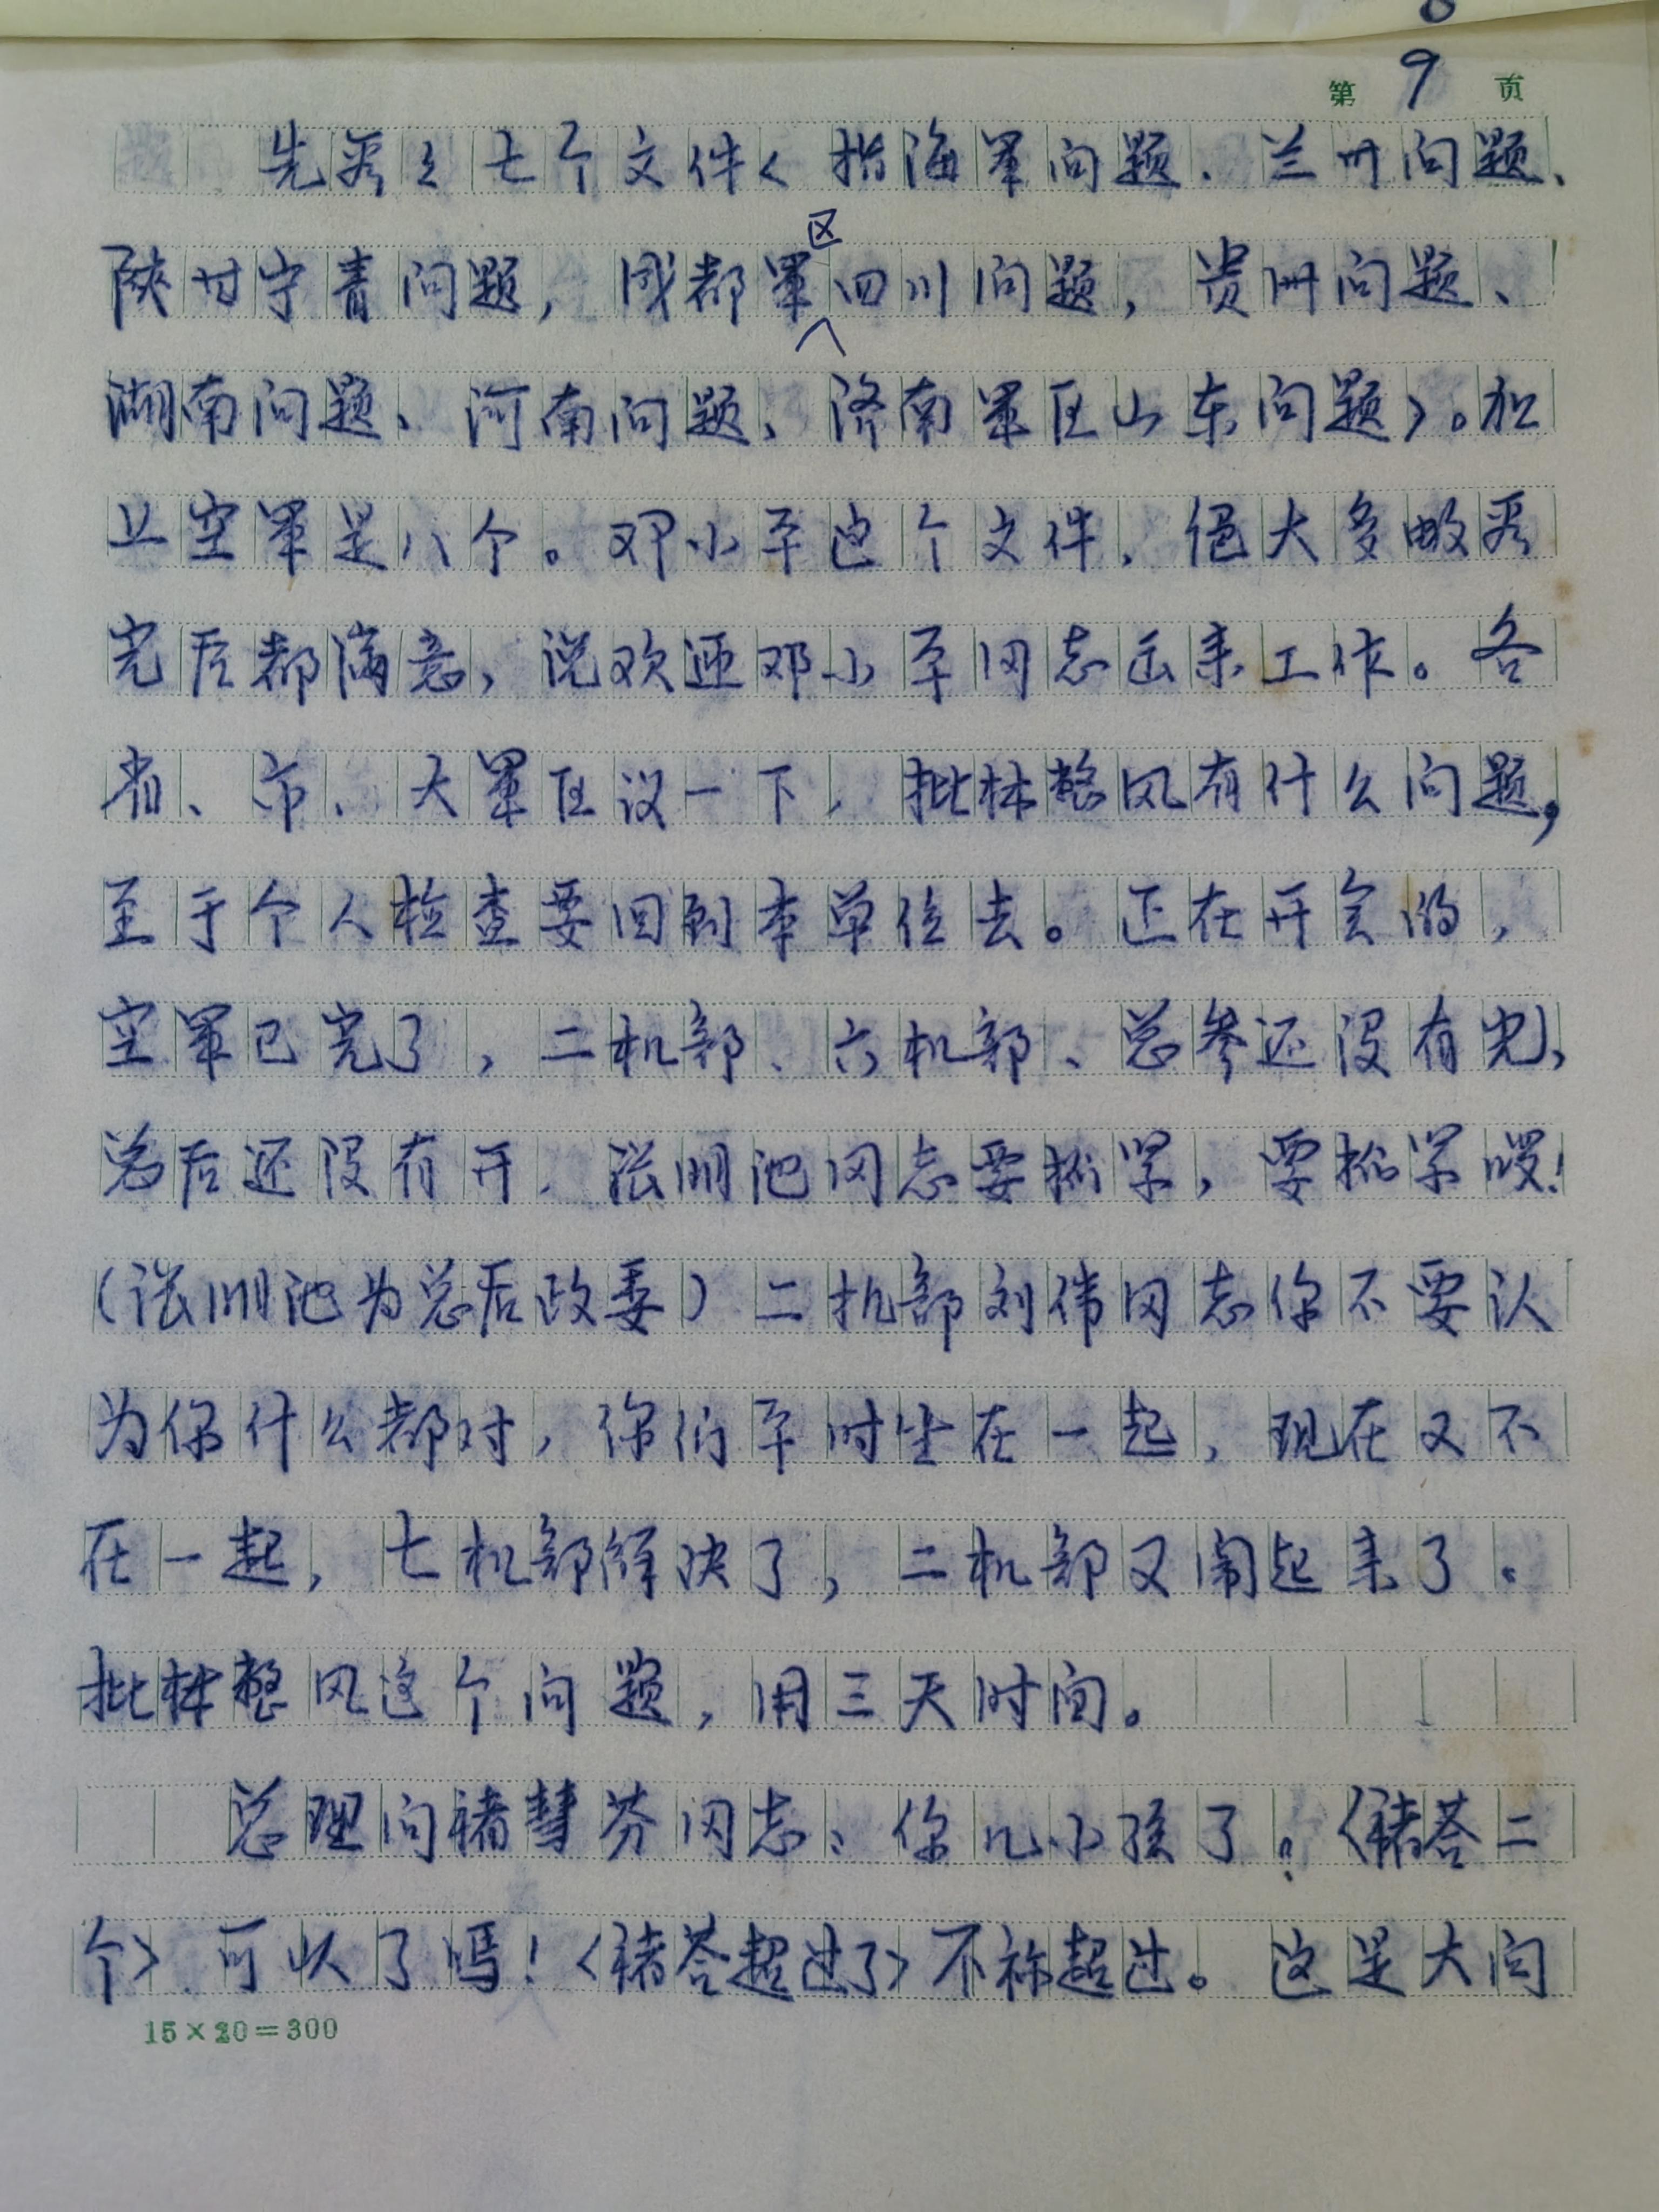 第 9 页
先看看七个文件<指海军问题、兰州问题、
陕甘宁青问题,成都军区四川问题,贵州问题、
湖南问题、河南问题、济南军区山东问题>。加
上空军是八个。邓小平这个文件,绝大多数看
完后都满意,说欢迎邓小平同志出来工作。各
省、市、大军区议一下,批林整风有什么问题,
至于个人检查要回到本单位去。正在开会的,
空军已完了,二机部、六机部、总参还没有完,
总后还没有开,张明池同志要抓紧,要抓紧啰!
(张明池为总后政委)二机部刘伟同志你不要认
为你什么都对,你们平时坐在一起,现在又不
在一起,七机部解决了,二机部又闹起来了。
批林整风这个问题,用三天时间。
总理问褚慧芬同志、你几小孩了?<褚答二
个>可以了吗!<褚答超过了>不称超过。这是大问
15×20=300